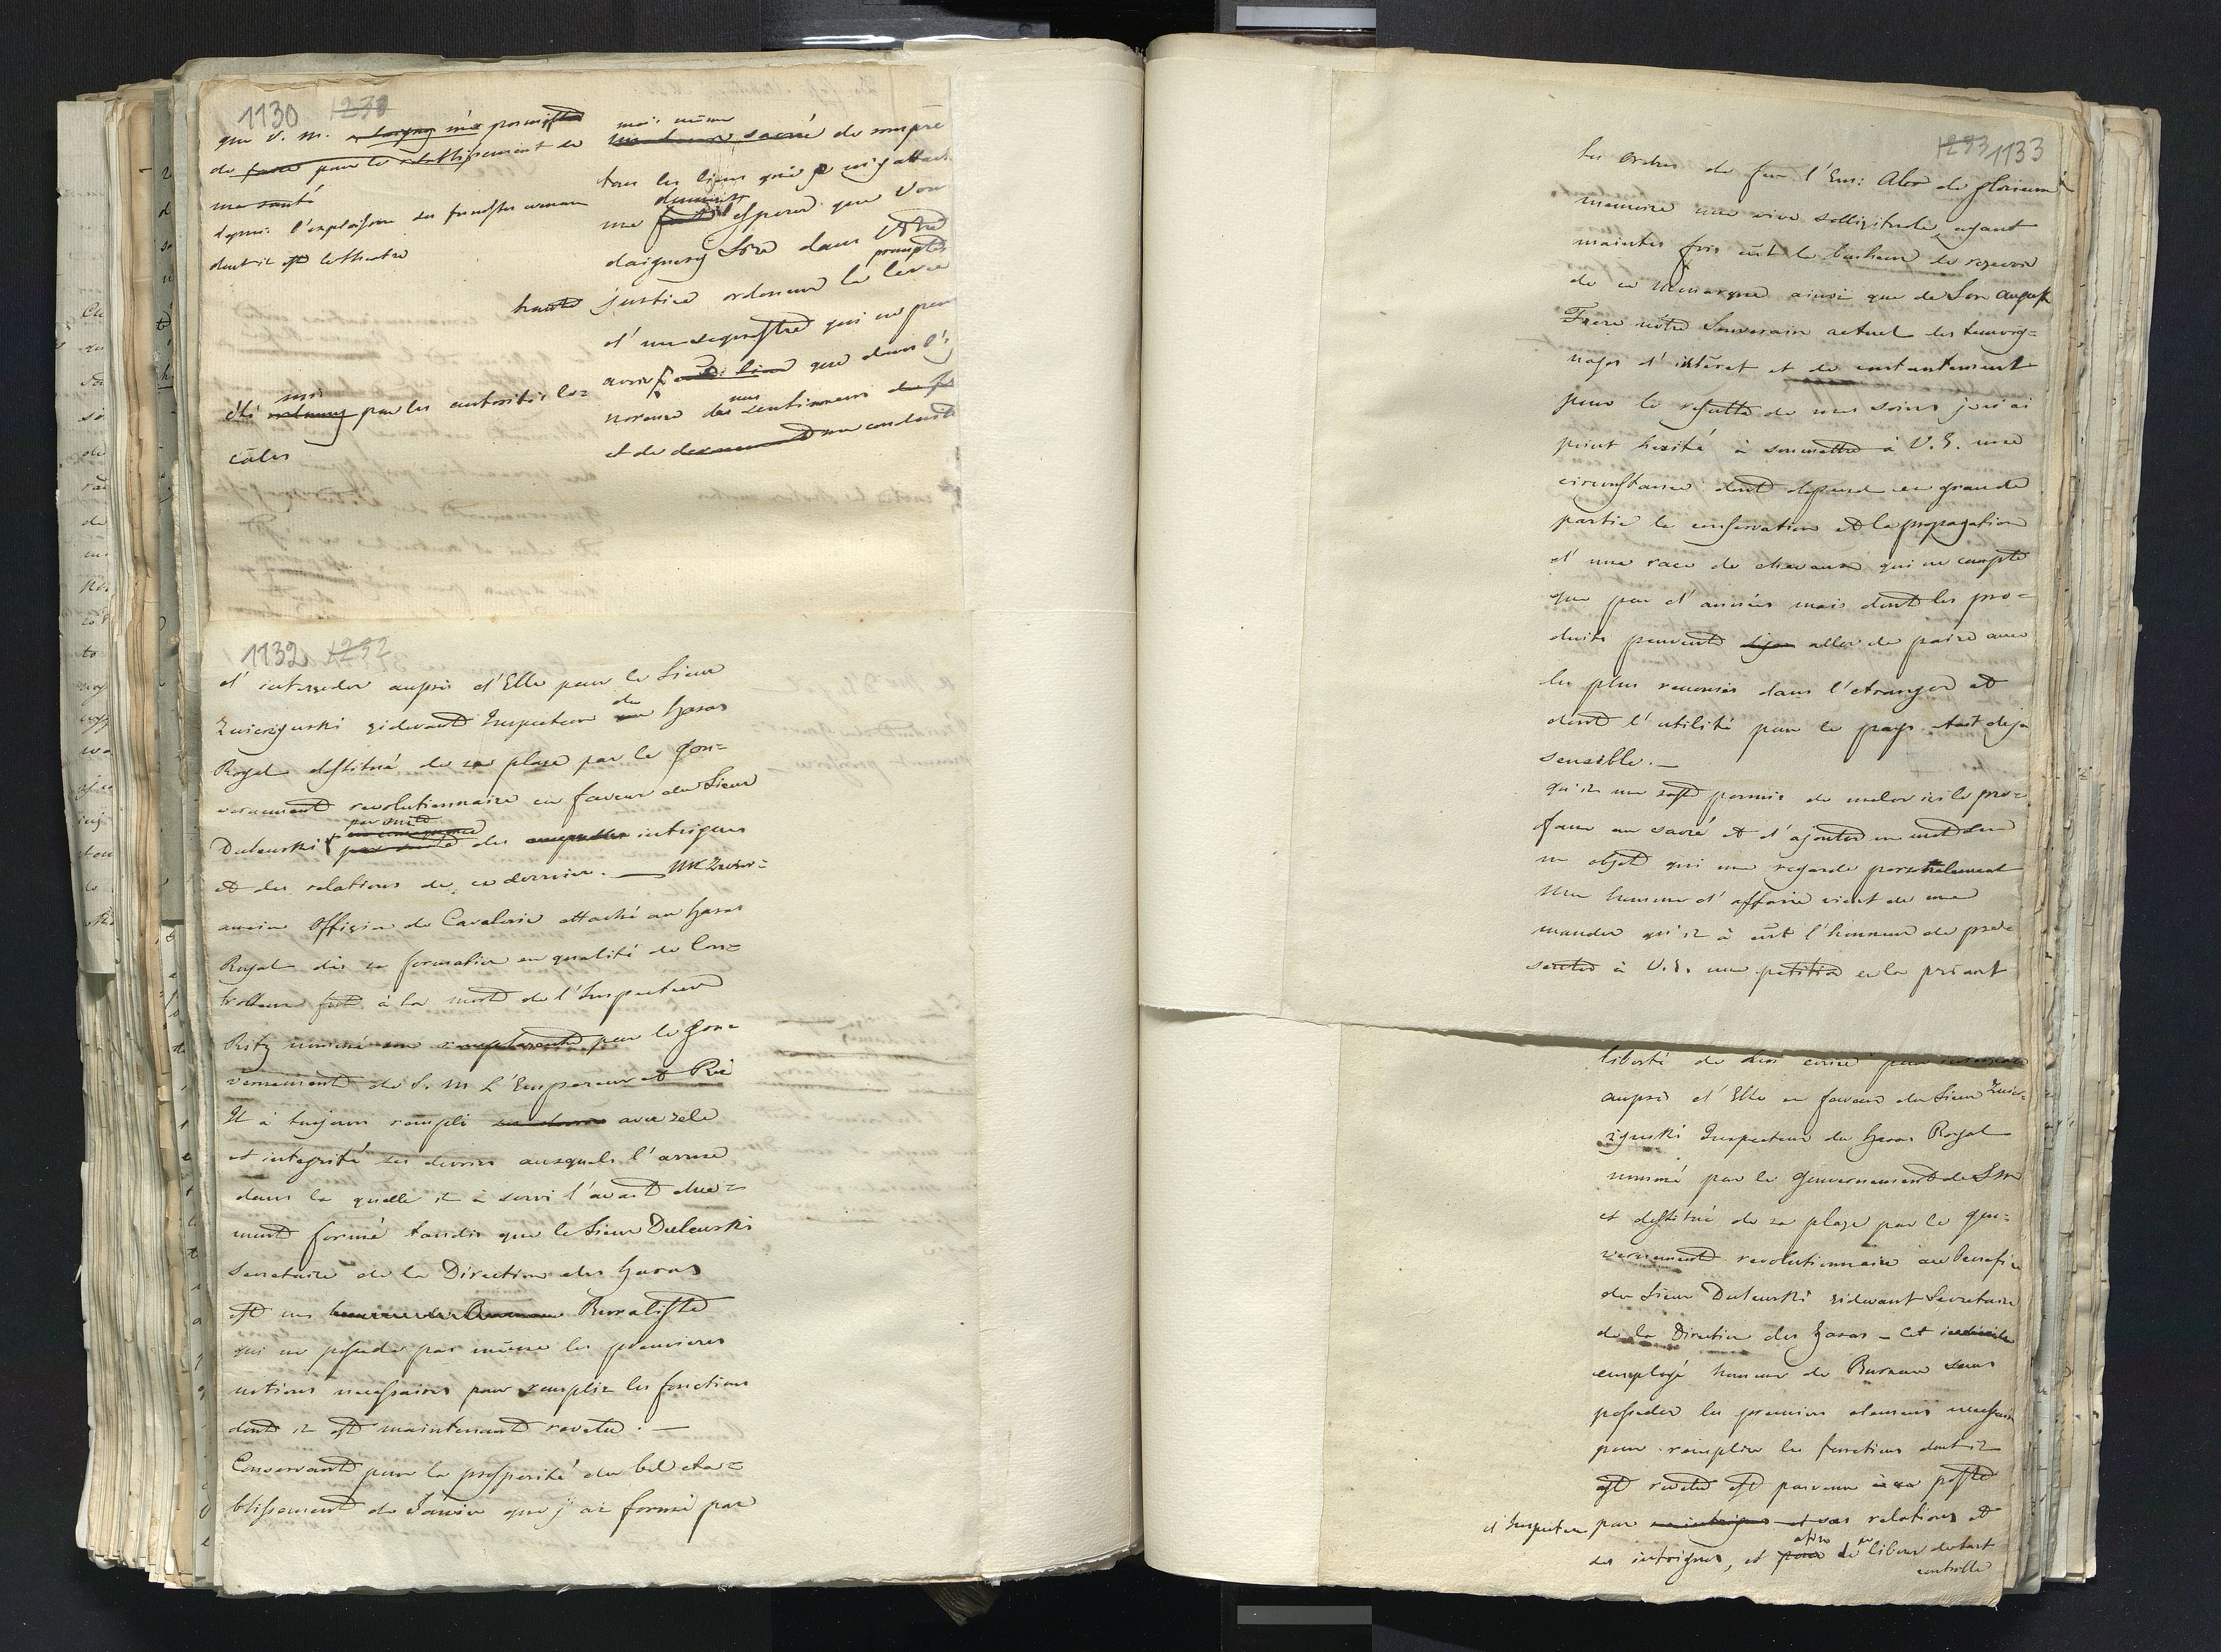 1130 1270
que V. M. a daigné m'a permis
de faire pour le rétablissement de
ma santé
depuis l'explosion des funestes
dont il est le theatre
été mis ordonné par les autorités lo=
cales
moi même
sacré de rompre
tous les liens qui m'y attach
me fait esperer que Vou
daignerez Sire dans Votre
haute justice ordonner la prompte levée
d'un sequestre qui ne peut
avoir lieu que dans l'i
norance de mes sentimens
et de ma conduite
1132 1292
d'interceder auprès d'Elle pour le Sieur
Zwierzynski cidevant Inspecteur du haras
Royal destitué de sa place par le Gou=
vernement revolutionnaire en faveur du Sieur
Dulewski par suite des intrigues
et des relations de ce dernier. — Mr Zwier=
ancien Officier de Cavalerie attaché au haras
Royal dès sa formation en qualité de Con=
trolleur fut à la mort de l'Inspecteur
Ritz nommé son remplacant par le Gou=
vernement de S. M. L'Empereur et Roi
Il a toujours rempli avec zele
et integrité ses devoirs auxquels l'arme
dans la quelle il a servi l'avait due=
ment formé tandis que le Sieur Dulewski
Secretaire de la Direction des haras
est un homme de Bureau Buraliste
qui ne possede pas même les premieres
notions necessaires pour remplir les fonctions
dont il est maintenant revetu. —
Conservant pour la prosperité du bel eta=
blissement de Janow que j'ai formé par
1293 1133
les ordres de feu l'Em: Alex de glorieuse
memoire une vive sollicitude, ayant
maintes fois eût le bonheur de recevoir
de ce Monarque ainsi que de Son Auguste
Frere nôtre Souverain actuel les temoig=
nages d'intéret et de contentement
pour le resultat de mes soins je n'ai
point hezité à soumettre à V. E. une
circonstance dont depend en grande
partie la conservation et la propagation
d'une race de chevaux qui ne compte
que peu d'années mais dont les pro=
duits peuvent aller de paire avec
les plus renomés dans l'etranger et
dont l'utilité pour le pays etait deja
sensible. —
qu'il me soit permis de meler ici le pro=
fane au sacré et d'ajouter un mot sur
un objet qui me regarde personelement
Mon homme d'affaire vient de me
mander qu'il à eût l'honneur de pre=
senter à V. E. une petition en la priant
liberté de
auprès d'Elle en faveur du Sieur Zwier=
zynski Inspecteur du haras Royal
nommé par le Gouvernement de S M
et destitué de sa place par le Gou=
vernement revolutionnaire au benefice
du Sieur Dulewski cidevant Secretaire
de la Direction des haras — Cet
employé homme de Bureau sans
posseder les premiers elemens necessair
pour remplir les fonctions dont il
est revetu est parvenu à sa poste
d'Inspecteur par ses intrigues et ses relations et
des intrigues, et afin de libere de tout
controlle